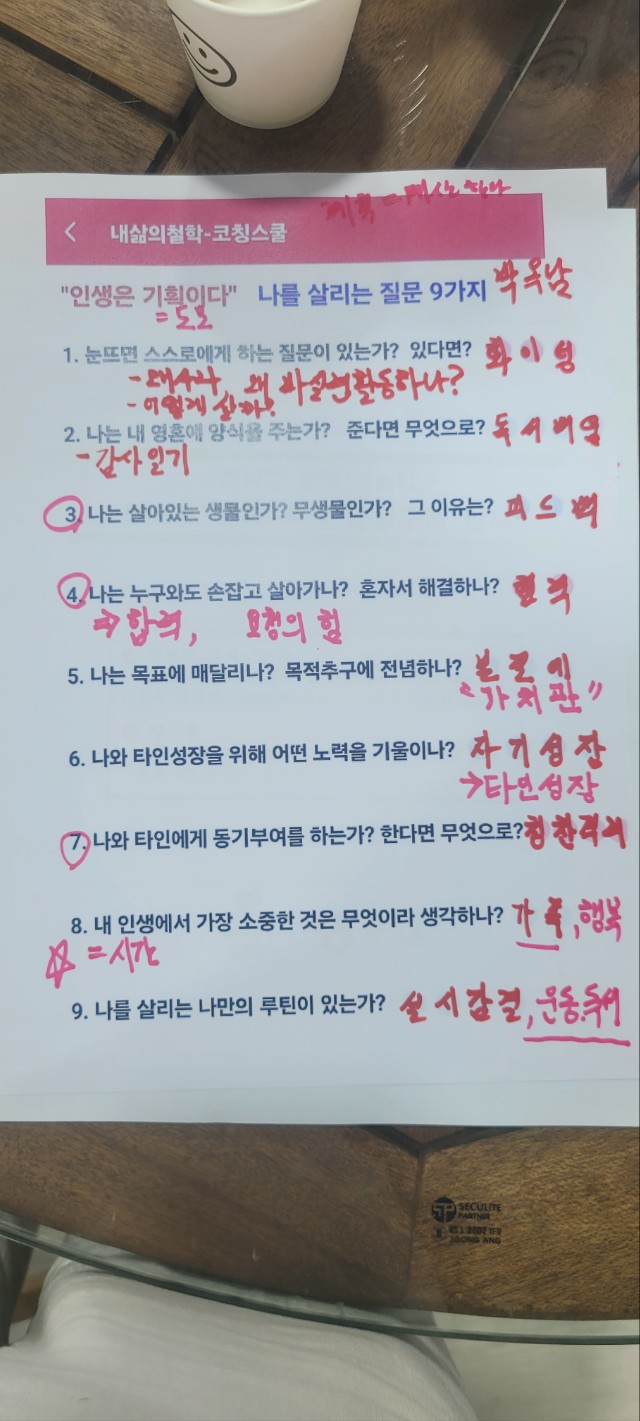 내삶의철학-코칭스쿨
"인생은 기획이다" 나를 살리는 질문 9가지 박옥남
= 도모
1. 눈뜨면 스스로에게 하는 질문이 있는가? 있다면? 화 이 영
- 왜 사나, 왜 활동하나?
- 어떻게 살까?
2. 나는 내 영혼에 양식을 주는가? 준다면 무엇으로? 독 서
- 감사일기
3. 나는 살아있는 생물인가? 무생물인가? 그 이유는? 피 드 백
4. 나는 누구와도 손잡고 살아가나? 혼자서 해결하나? 협 력
⇒ 합력, 요청의 힘
5. 나는 목표에 매달리나? 목적추구에 전념하나?
"가치관"
6. 나와 타인성장을 위해 어떤 노력을 기울이나? 자 기 성 장
→타인성장
7. 나와 타인에게 동기부여를 하는가? 한다면 무엇으로? 칭찬격려
8. 내 인생에서 가장 소중한 것은 무엇이라 생각하나? 가 족, 행복
☆ = 시간
9. 나를 살리는 나만의 루틴이 있는가? 실 시 감 결, 운동.독서
SP SECULITE
PARTNER